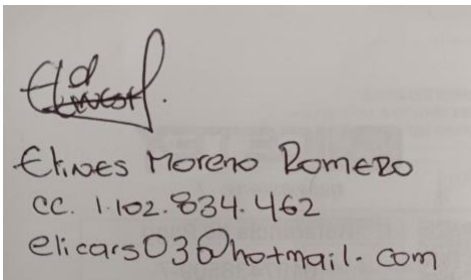 Elines Moreno Romero
cc. 1.102.834.462
elicars03@hotmail.com